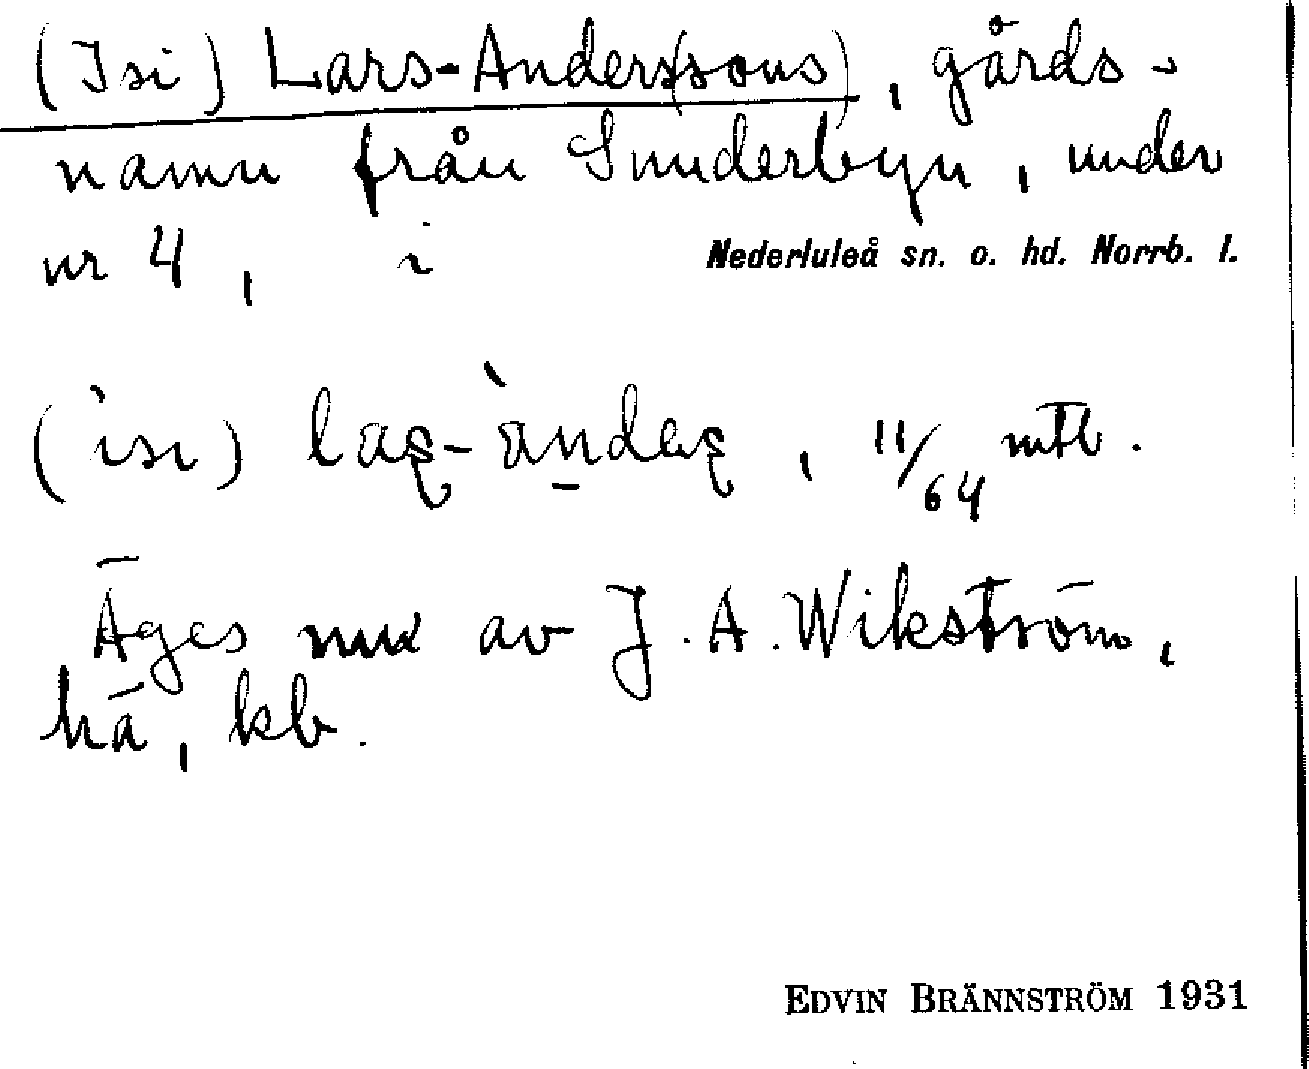 (Isi) Lars-Anders(sons), gårds-
namn från Sunderbyn, under
nr 4, i Nederluleå sn. o. hd. Norrb. l.
(ìsı) 11/64 mtl.
Äges nu av J. A. Wikström,
hä, kb.
EDVIN BRÄNNSTRÖM 1931